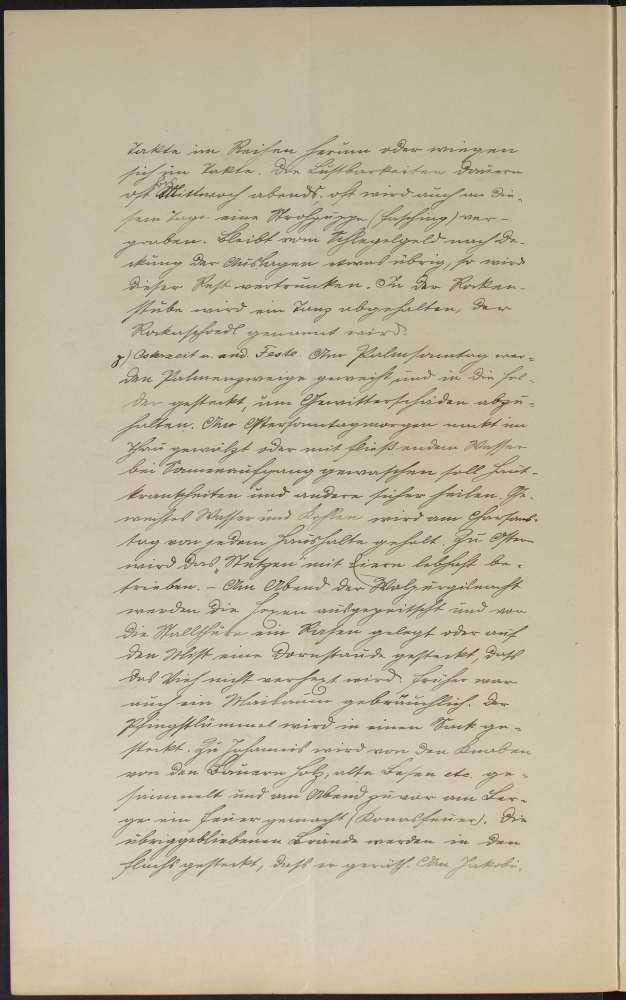 Takte im Reihen herum oder wiegen
sich im Takte. Die Lustbarkeiten dauern
oft bis Mittwoch abends. oft wird auch an die-
sem Tage eine Strohpuppe (Fasching) ver-
graben. Bleibt vom Schlegelgeld nach De-
ckung der Auslagen etwas übrig, so wird
dieser Rest vertrunken. In der Rocken-
stube wird ein Tanz abgehalten, der
genannt wird.
z) Osterzeit u. and. Feste. Am Palmsonntag wer-
den Palmenzweige geweiht und in die Fel-
der gesteckt, um Gewitterschäden abzu-
halten. Am Ostersonntagmorgen nackt im
Thau gewälzt oder mit fließendem Wasser
bei Sonnenaufgang gewaschen soll Haut-
krankheiten und andere sicher heilen. Ge-
weihtes Wasser und Kohlen wird am Charsams-
tag von jedem Haushalte geholt. Zu Ostern
wird das "Stutzen" mit Eiern lebhaft be-
trieben. - Am Abend der Walpurgisnacht
werden die Hexen ausgepeitscht und vor
die Stallthüre ein Rasen gelegt oder auf
den Mist eine Dornstaude gesteckt, daß
das Vieh nicht verhext wird. Früher war
auch ein Maibaum gebräuchlich. Der
Pfingstlümmel wird in einen Sack ge-
steckt. Zu Johannis wird von den Knaben
von den Bauern Holz, alte Besen etc. ge-
sammelt und am Abend zuvor am Ber-
ge ein Feuer gemacht (Konasfeuer). Die
übriggebliebenen Brände werden in den
Flachs gesteckt, daß er geräth. Am Jakobi-